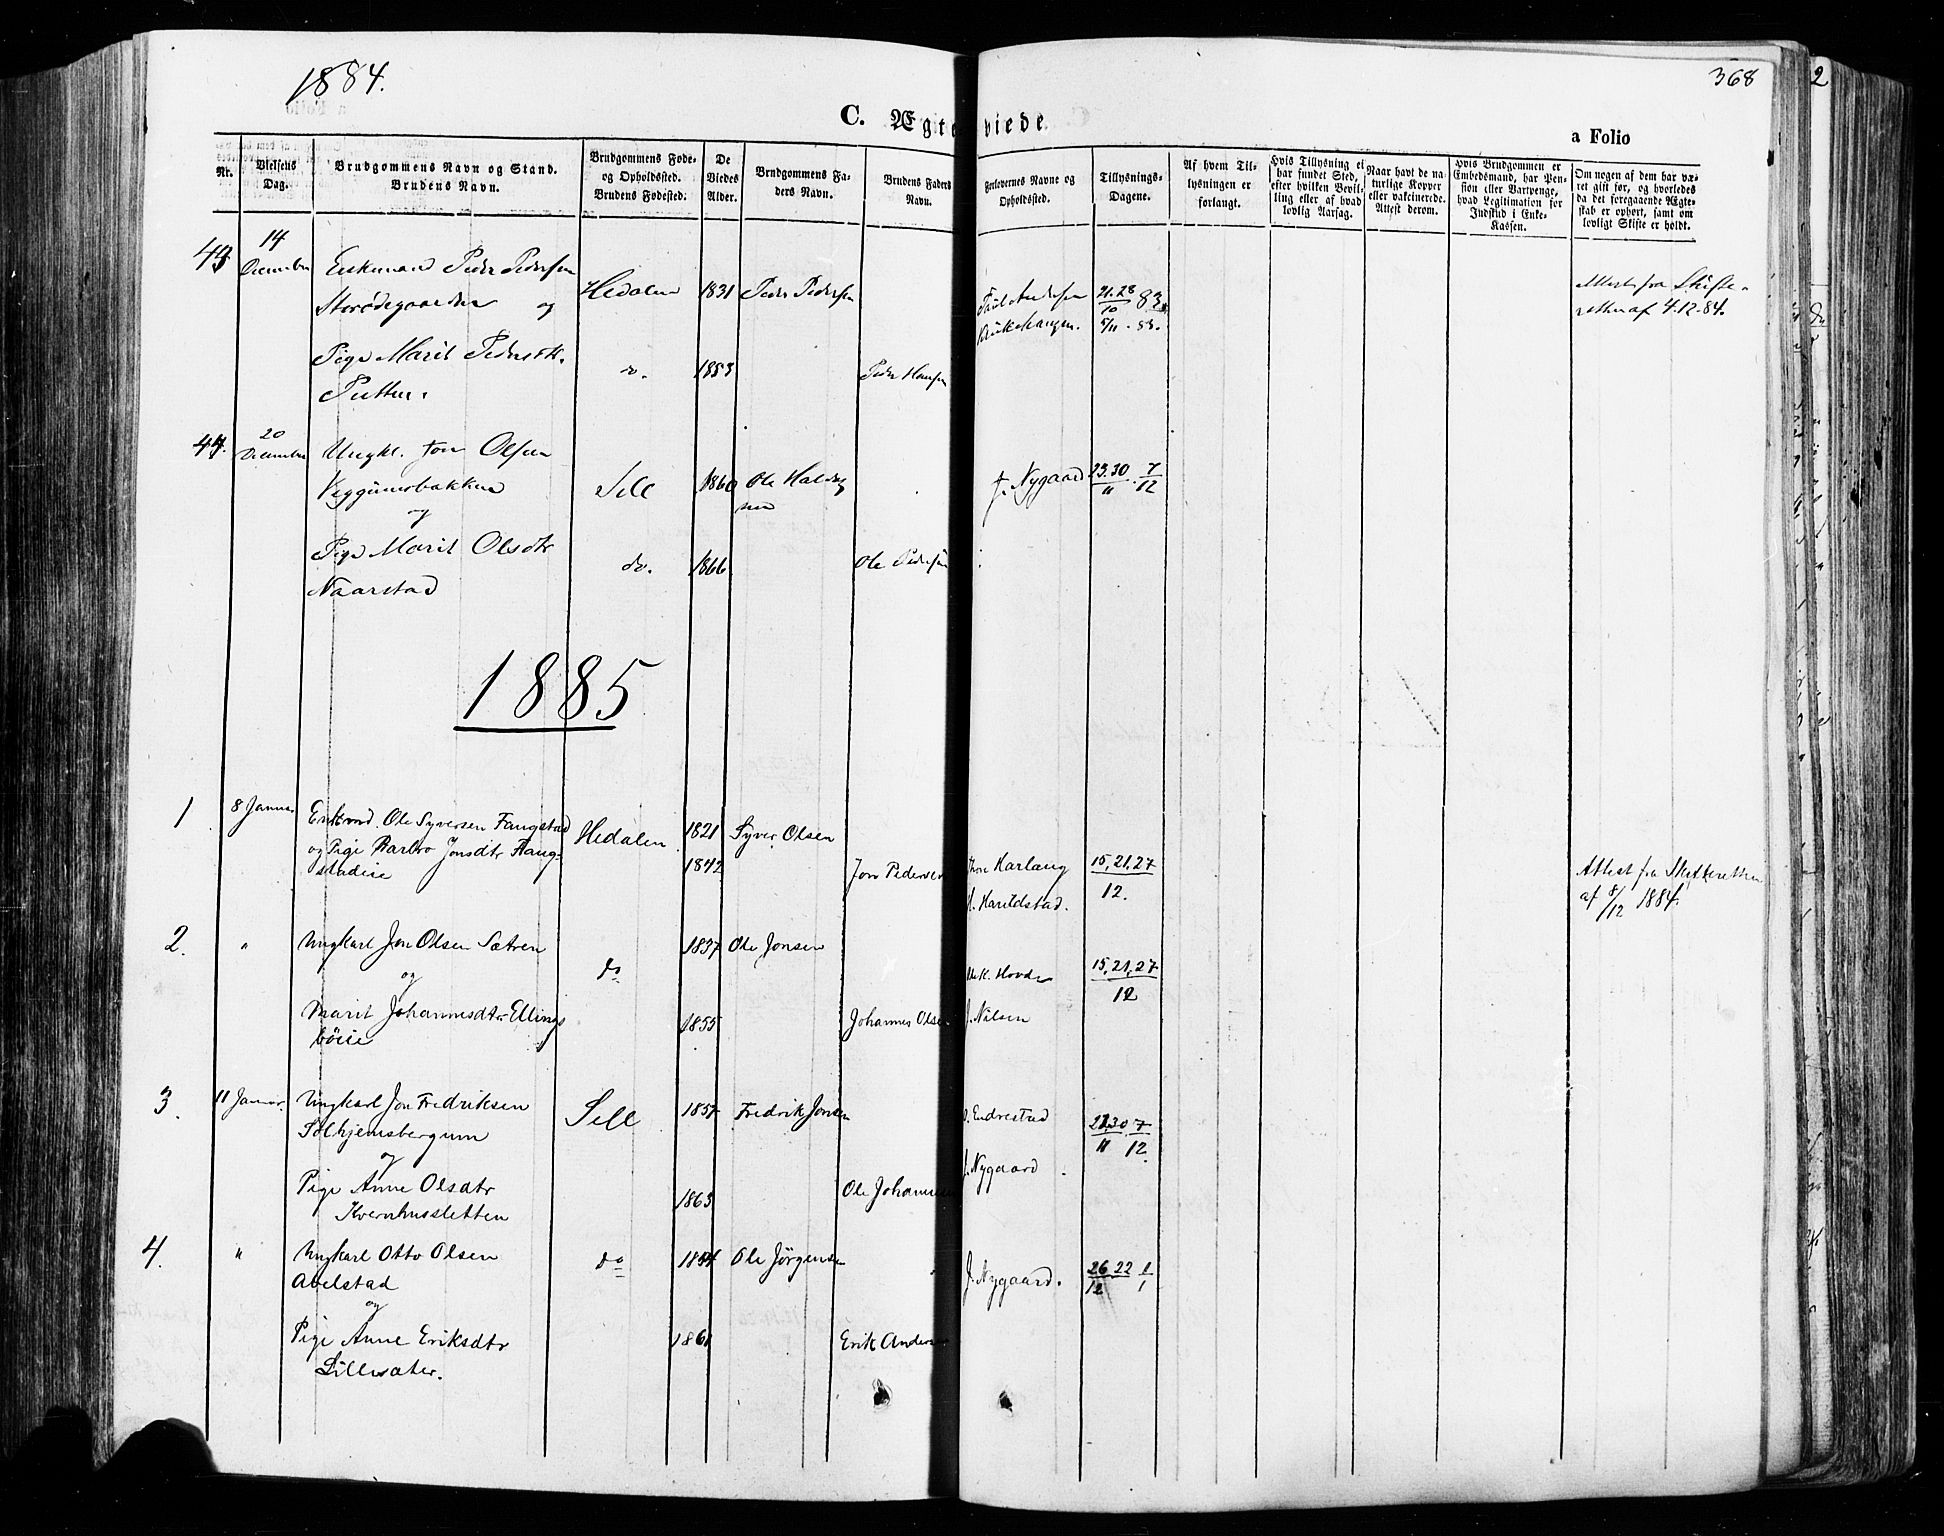 1884.
368
2
C. Ægteviede
a Folio
Nr.
Vielsens Dag.
Brudgommens Navn og Stand.
Brudens Navn.
Brudgommens Føde- og Opholdssted.
Brudens Fødested.
De Viedes Alder.
Brudgommens Faders Navn.
Brudens Faders Navn.
Forlovernes Navne og Opholdssted.
Tillysnings-Dagene.
Af hvem Tillysningen er forlangt.
Hvis Tillysning ei har fundet Sted, efter hvilken Bevilling eller af hvad lovlig Aarsag.
Naar havt de naturlige Kopper eller vakcinerede. Attest derom.
Hvis Brudgommen er Embedsmand, har Pension eller Vartpenge, hvad Legitimation for Indskud i Enke-Kassen.
Om nogen af dem har været gift før, og hvorledes da det foregaaende Ægteskab er ophørt, samt om lovligt Skifte er holdt.
14 December
Enkemand Peder Pedersen
og
Hedalen 1831 Peder Pedersen
21.28/10 83.
5/11 . 83.
Attest fra Skifte-
retten af 4-12-84.
Pige Marit Pedersdtr.
do. 1853 Peder Hansen
44. 20 December
Ungkl. Jon Olsen
og
Sell 1860
J. Nygaard 23.30/11 . 7/12
Pige Marit Olsdtr
Naarstad
do. 1866 Ole Pedersen
1885
1 8 Januar
Enkemd. Ole Syversen Fangstad
og Pige Barbro Jonsdtr Haug-
Hedalen 1821 Syver Olsen
1842 Jon Pedersen
15, 21, 27/12.
Attest fra Skifteretten
af 8/12 1884.
2. " Ungkarl Jon Olsen Sætren
og
do 1837 Ole Jonsen
15, 21, 27/12
Marit Johannesdtr Ellings
böeie
1855 Johannes Olsen
J. Nilsen
3. 11 Januar.
Ungkarl Jon Fredriksen
Solhjemsbergum
og
Sell 1857 Fredrik Jonsen
Endrestad
30/11 7/12
J. Nygaard
Pige Anne Olsdtr
Kvernhussletten
1863 Ole Johannesen
4. " Ungkarl Otto Olsen
Avelstad
og
do 1854 Ole Jörgensen
J. Nygaard. 26 22/12 1/1
Pige Anne Eriksdtr
Lillesæter.
1861 Erik Andersen